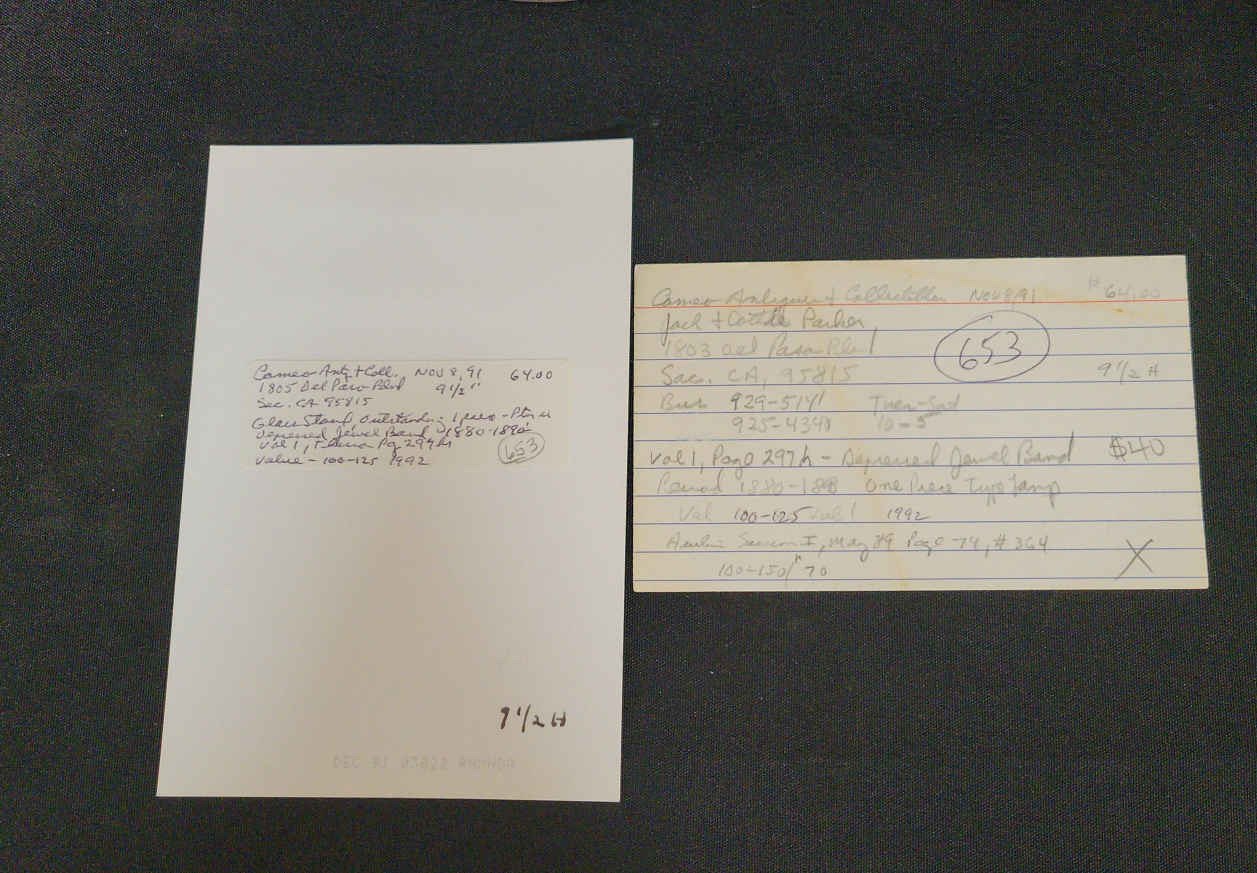 Cameo Antq + Coll. NOV 8, 91 64.00
1805 Del Paso Blvd 9 1/2 "
Sac. CA 95815
Glass Stand Outstanding 1 piece -
Depressed Jewel Band 1880-1890
Vol 1, Pg 297h
Value - 100-125 1992
653
9 1/2 H
DEC 91
Cameo Antiques + Collectibles NOV 8, 91 64.00
Jack + Parker
1803 Del Paso Blvd
653
Sac. CA, 95815 9 1/2 H
Bus 929-5141 Tues-Sat
925-4340 10-5
Vol 1, Page 297h - Depressed Jewel Band $40
Period 1880-188 One Piece Type Lamp
Val 100-125 Vol 1 1992
May 89 Page 74, # 364
100-150/70
X